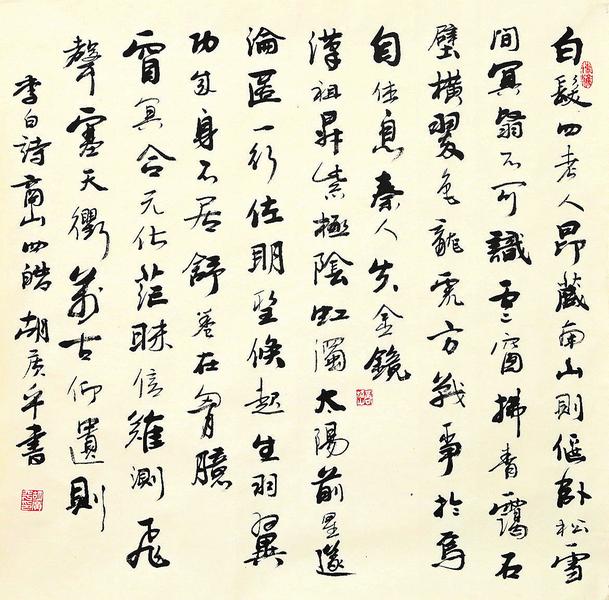 白髮四老人昂藏南山側偃臥松雪
間冥翳不可識雲窗拂青靄石
壁橫翠色龍虎方戰爭於焉
自休息秦人失金鏡
漢祖昇紫極陰虹濁太陽前星遂
淪匿一行佐明聖倏起生羽翼
功成身不居舒卷在胸臆
窅冥合元化茫昧信難測飛
聲塞天衢萬古仰遺則
李白詩商山四皓 胡廣平書